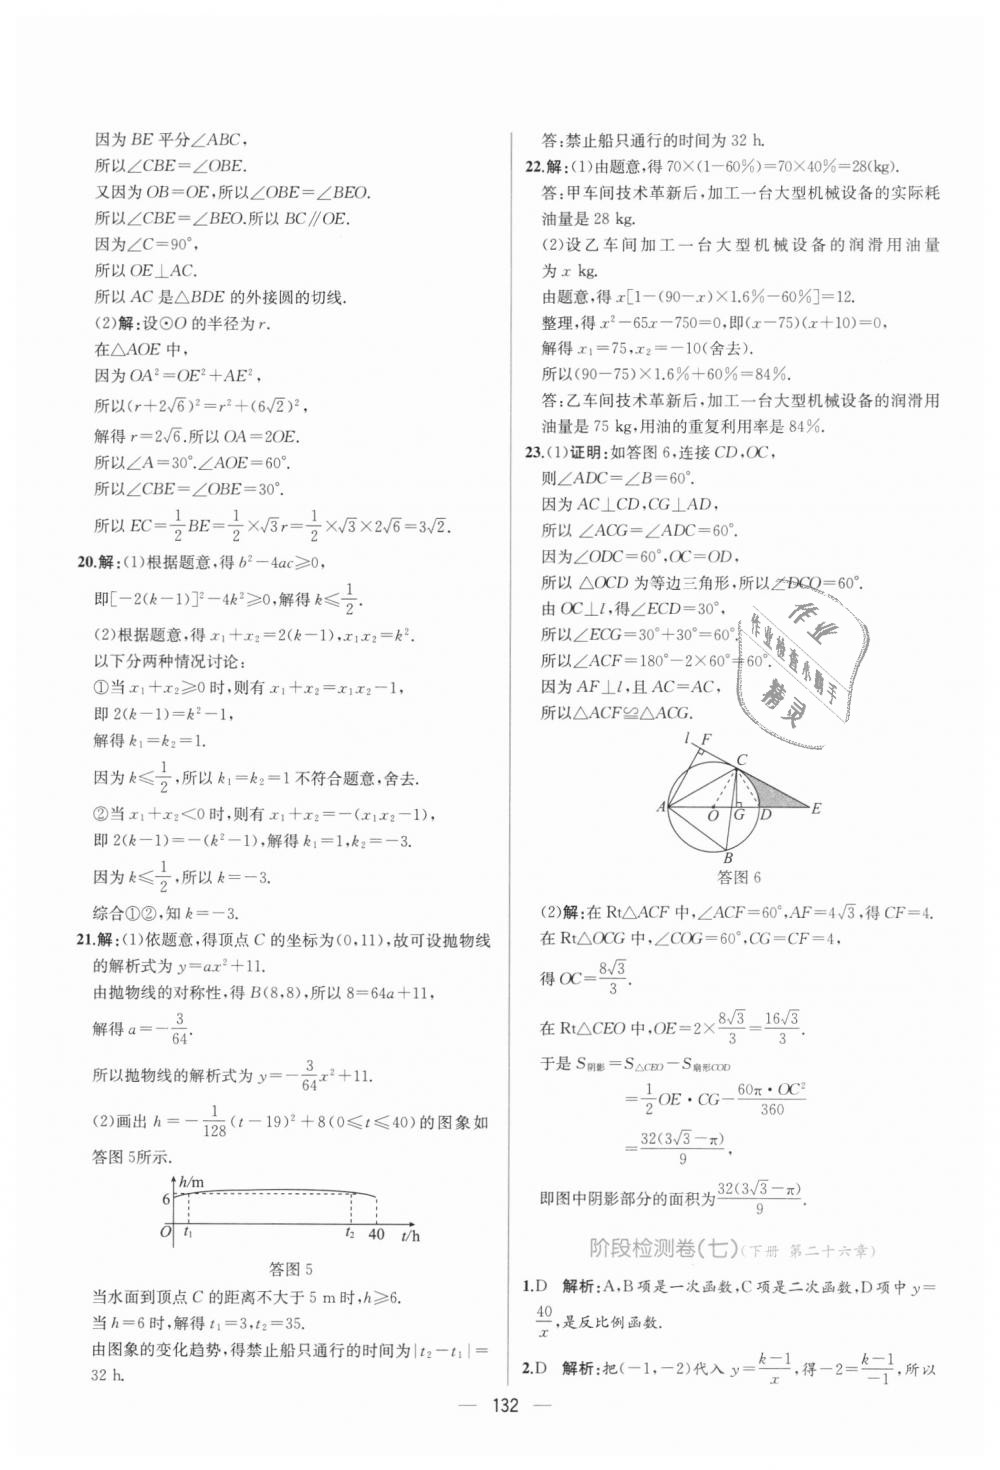 因为 BE 平分∠ABC,
所以∠CBE=∠OBE.
又因为 OB=OE,所以∠OBE=∠BEO.
所以∠CBE=∠BEO.所以 BC∥OE.
因为∠C=90°,
所以 OE⊥AC.
所以 AC 是△BDE 的外接圆的切线.
(2)解:设⊙O 的半径为 r.
在△AOE 中,
因为 OA²=OE²+AE²,
所以(r+2√6)²=r²+(6√2)²,
解得 r=2√6.所以 OA=2OE.
所以∠A=30°.∠AOE=60°.
所以∠CBE=∠OBE=30°.
所以 EC=1/2BE=1/2×√3r=1/2×√3×2√6=3√2.
20.解:(1)根据题意,得 b²-4ac≥0,
即[-2(k-1)]²-4k²≥0,解得 k≤1/2.
(2)根据题意,得 x₁+x₂=2(k-1),x₁x₂=k².
以下分两种情况讨论:
①当 x₁+x₂≥0 时,则有 x₁+x₂=x₁x₂-1,
即 2(k-1)=k²-1,
解得 k₁=k₂=1.
因为 k≤1/2,所以 k₁=k₂=1 不符合题意,舍去.
②当 x₁+x₂<0 时,则有 x₁+x₂=-(x₁x₂-1),
即 2(k-1)=-(k²-1),解得 k₁=1,k₂=-3.
因为 k≤1/2,所以 k=-3.
综合①②,知 k=-3.
21.解:(1)依题意,得顶点 C 的坐标为(0,11),故可设抛物线
的解析式为 y=ax²+11.
由抛物线的对称性,得 B(8,8),所以 8=64a+11,
解得 a=-3/64.
所以抛物线的解析式为 y=-3/64x²+11.
(2)画出 h=-1/128(t-19)²+8(0≤t≤40)的图象如
答图 5所示.
h/m
6
O t₁ t₂ 40 t/h
答图 5
当水面到顶点 C 的距离不大于 5 m时,h≥6.
当 h=6 时,解得 t₁=3,t₂=35.
由图象的变化趋势,得禁止船只通行的时间为|t₂-t₁|=
32 h.
答:禁止船只通行的时间为 32 h.
22.解:(1)由题意,得 70×(1-60%)=70×40%=28(kg).
答:甲车间技术革新后,加工一台大型机械设备的实际耗
油量是 28 kg.
(2)设乙车间加工一台大型机械设备的润滑用油量
为 x kg.
由题意,得 x[1-(90-x)×1.6%-60%]=12.
整理,得 x²-65x-750=0,即(x-75)(x+10)=0,
解得 x₁=75,x₂=-10(舍去).
所以(90-75)×1.6%+60%=84%.
答:乙车间技术革新后,加工一台大型机械设备的润滑用
油量是 75 kg,用油的重复利用率是 84%.
23.(1)证明:如答图 6,连接 CD,OC,
则∠ADC=∠B=60°.
因为 AC⊥CD,CG⊥AD,
所以 ∠ACG=∠ADC=60°.
因为∠ODC=60°,OC=OD,
所以 △OCD 为等边三角形,所以∠DCO=60°.
由 OC⊥l,得∠ECD=30°,
所以∠ECG=30°+30°=60°.
所以∠ACF=180°-2×60°=60°.
因为 AF⊥l,且 AC=AC,
所以△ACF≌△ACG.
作业
作业检查小助手
精灵
l F
C
A O G D E
B
答图 6
(2)解:在 Rt△ACF 中,∠ACF=60°,AF=4√3,得 CF=4.
在 Rt△OCG 中,∠COG=60°,CG=CF=4,
得 OC=8√3/3.
在 Rt△CEO 中,OE=2×8√3/3=16√3/3.
于是 S阴影=S△CEO-S扇形COD
=1/2OE·CG-60π·OC²/360
=32(3√3-π)/9,
即图中阴影部分的面积为32(3√3-π)/9.
阶段检测卷(七)(下册 第二十六章)
1.D 解析:A,B 项是一次函数,C 项是二次函数,D 项中 y=
40/x,是反比例函数.
2.D 解析:把(-1,-2)代入 y=k-1/x,得-2=k-1/-1,所以
— 132 —